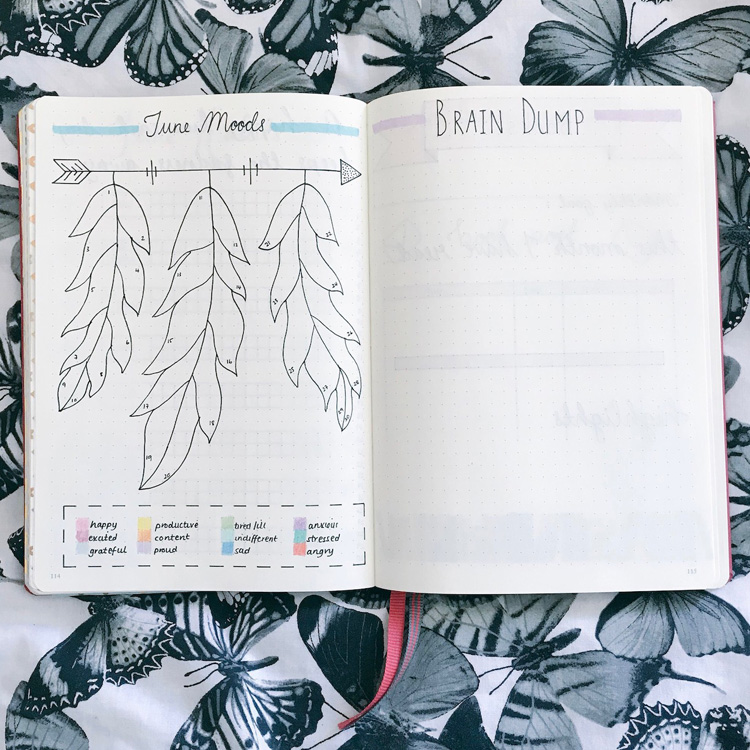 June Moods
1
2
3
4
5
6
7
8
9
10
11
12
13
14
15
16
17
18
19
20
21
22
23
24
25
26
27
28
29
30
happy productive tired/ill anxious
excited content indifferent stressed
grateful proud sad angry
114
BRAIN DUMP
115